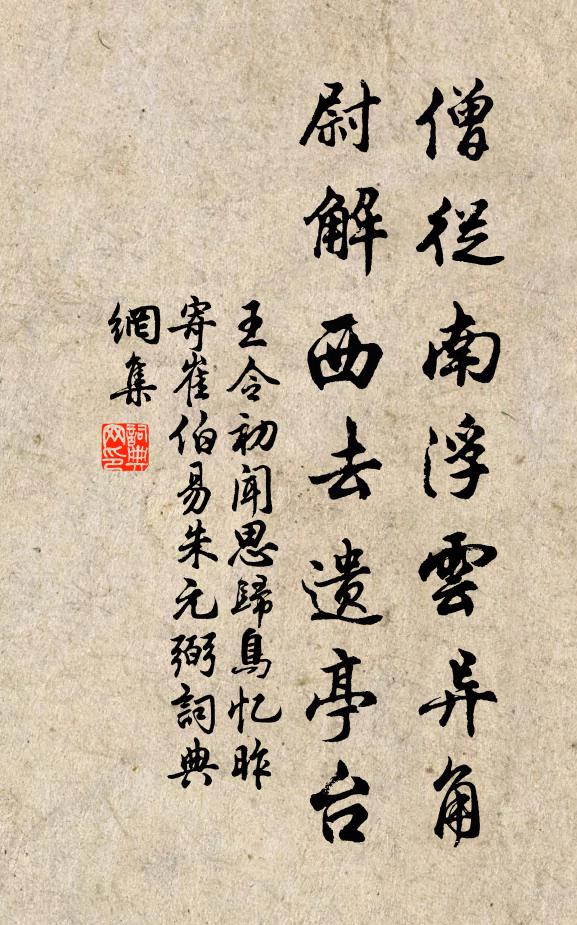 僧從南浮雲异角
尉解西去遺亭台
王令初聞思歸鳥忆昨
寄崔伯易朱元弼詞典
網集
詞典網印